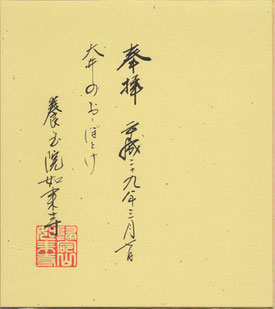 奉拝 平成二十九年三月一日
大井のおゝぼとけ
養玉院如来寺